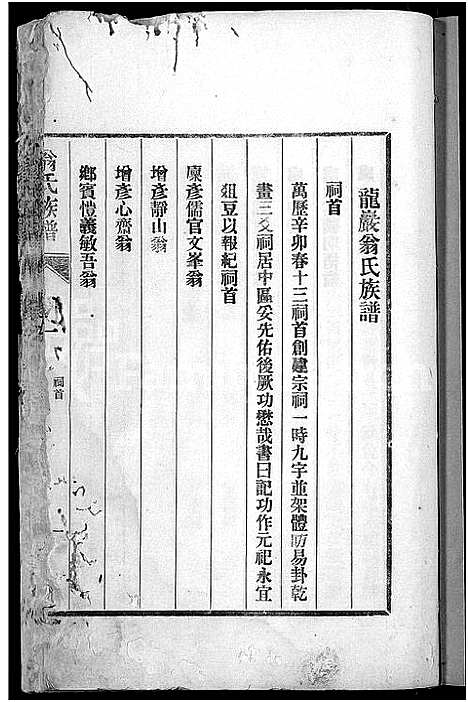 龍巖翁氏族譜
祠首
萬歷辛卯春十三祠首創建宗祠一時九宇並架體昉易卦乾
畫三爻祠居中區妥先佑後厥功懋哉書曰記功作元祀永宜
俎豆以報紀祠首
廩彥儒官文峯翁
增彥靜山翁
增彥心齋翁
鄉賓愷義敏吾翁
翁氏族譜
祠首